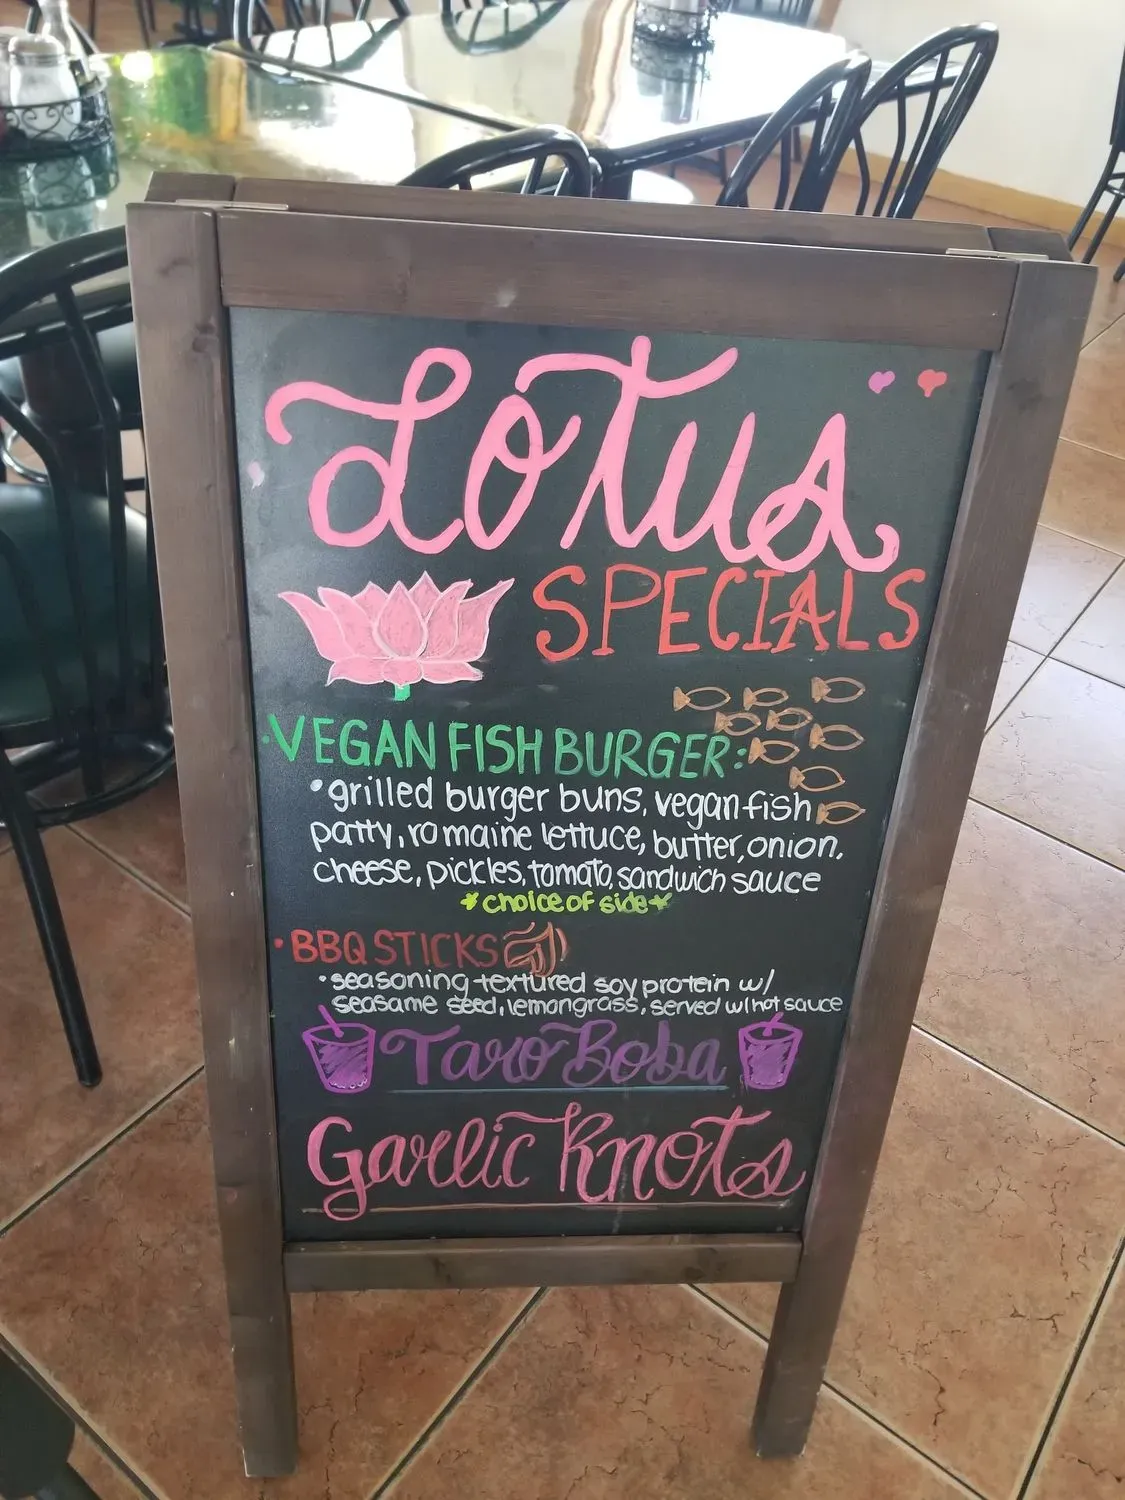 Lotus
SPECIALS
·VEGAN FISH BURGER:
•grilled burger buns, vegan fish
patty, romaine lettuce, butter, onion,
cheese, pickles, tomato, sandwich sauce
*choice of side*
·BBQ STICKS
•seasoning textured soy protein w/
seasame seed, lemongrass, served w/hot sauce
Taro Boba
Garlic Knots